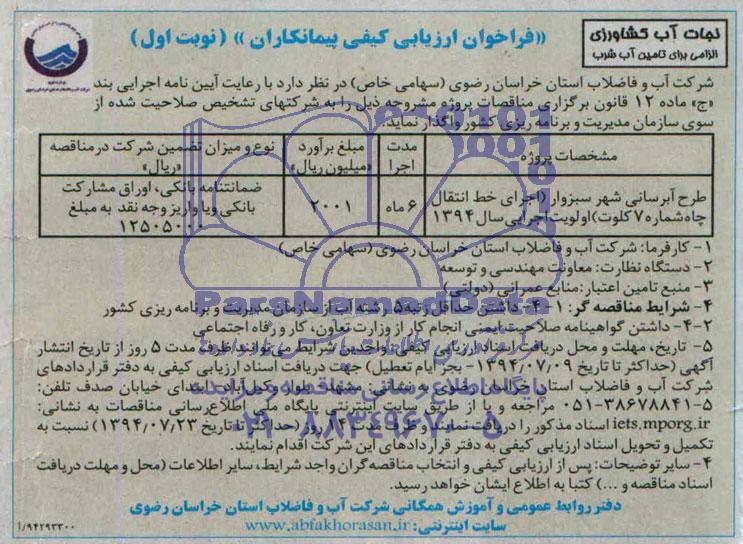 نجات آب کشاورزی
الزامی برای تامین آب شرب
«فراخوان ارزیابی کیفی پیمانکاران» (نوبت اول)
شرکت آب و فاضلاب استان خراسان رضوی (سهامی خاص) در نظر دارد با رعایت آیین نامه اجرایی بند
«ج» ماده ۱۲ قانون برگزاری مناقصات پروژه مشروحه ذیل را به شرکتهای تشخیص صلاحیت شده از
سوی سازمان مدیریت و برنامه ریزی کشور واگذار نماید.
مشخصات پروژه
مدت اجرا
مبلغ برآورد «میلیون ریال»
نوع و میزان تضمین شرکت در مناقصه «ریال»
طرح آبرسانی شهر سبزوار (اجرای خط انتقال
چاه شماره ۷ کلوت) اولویت اجرایی سال ۱۳۹۴
۶ ماه
۲۰۰۱
ضمانتنامه بانکی، اوراق مشارکت
بانکی ویا واریز وجه نقد به مبلغ
۱۲۵۰۵۰۰۰۰
۱- کارفرما: شرکت آب و فاضلاب استان خراسان رضوی (سهامی خاص)
۲- دستگاه نظارت: معاونت مهندسی و توسعه
۳- منبع تامین اعتبار: منابع عمرانی (دولتی)
۴- شرایط مناقصه گر: ۱-۴- داشتن حداقل رتبه ۵ رشته آب از سازمان مدیریت و برنامه ریزی کشور
۲-۴- داشتن گواهینامه صلاحیت ایمنی انجام کار از وزارت تعاون، کار و رفاه اجتماعی
۵- تاریخ، مهلت و محل دریافت اسناد ارزیابی کیفی: واجدین شرایط می توانند ظرف مدت ۵ روز از تاریخ انتشار
آگهی (حداکثر تا تاریخ ۱۳۹۴/۰۷/۰۹- بجز ایام تعطیل) جهت دریافت اسناد ارزیابی کیفی به دفتر قراردادهای
شرکت آب و فاضلاب استان خراسان رضوی به نشانی: مشهد، بلوار وکیل آباد، ابتدای خیابان صدف تلفن:
۰۵۱-۳۸۶۷۸۸۴۱-۵ مراجعه و یا از طریق سایت اینترنتی پایگاه ملی اطلاع رسانی مناقصات به نشانی:
iets.mporg.ir اسناد مذکور را دریافت نمایند و ظرف مدت ۱۴ روز (حداکثر تا تاریخ ۱۳۹۴/۰۷/۲۳) نسبت به
تکمیل و تحویل اسناد ارزیابی کیفی به دفتر قراردادهای این شرکت اقدام نمایند.
۴- سایر توضیحات: پس از ارزیابی کیفی و انتخاب مناقصه گران واجد شرایط، سایر اطلاعات (محل و مهلت دریافت
اسناد مناقصه و ...) کتبا به اطلاع ایشان خواهد رسید.
دفتر روابط عمومی و آموزش همگانی شرکت آب و فاضلاب استان خراسان رضوی
سایت اینترنتی: www.abfakhorasan.ir
۹۴۲۹۳۳۰۰/ا
ParsNamadData
پایگاه اطلاع رسانی مناقصه و مزایده
۰۲۱-۸۸۳۴۹۶۷۰-۵